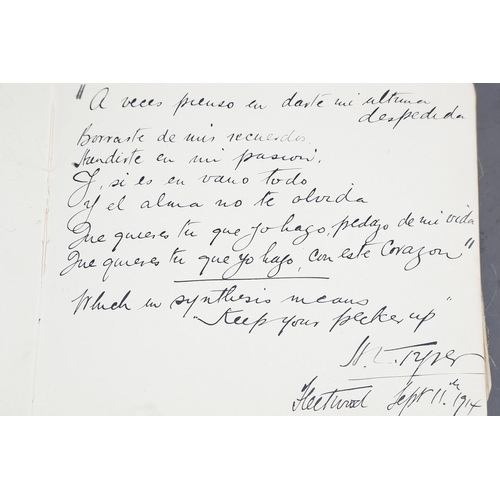 "A veces pienso en darte mi ultima
despedida
Borrarte de mis recuerdos
Hundirte en mi pasion.
Y, si es en vano todo
Y el alma no te olvida
Que quieres tu que yo hago, pedazo de mi vida
Que quieres tu que yo hago, con este corazon"
Which in synthesis means
"Keep your pecker up"
Fleetwood Sept 11.th 1914